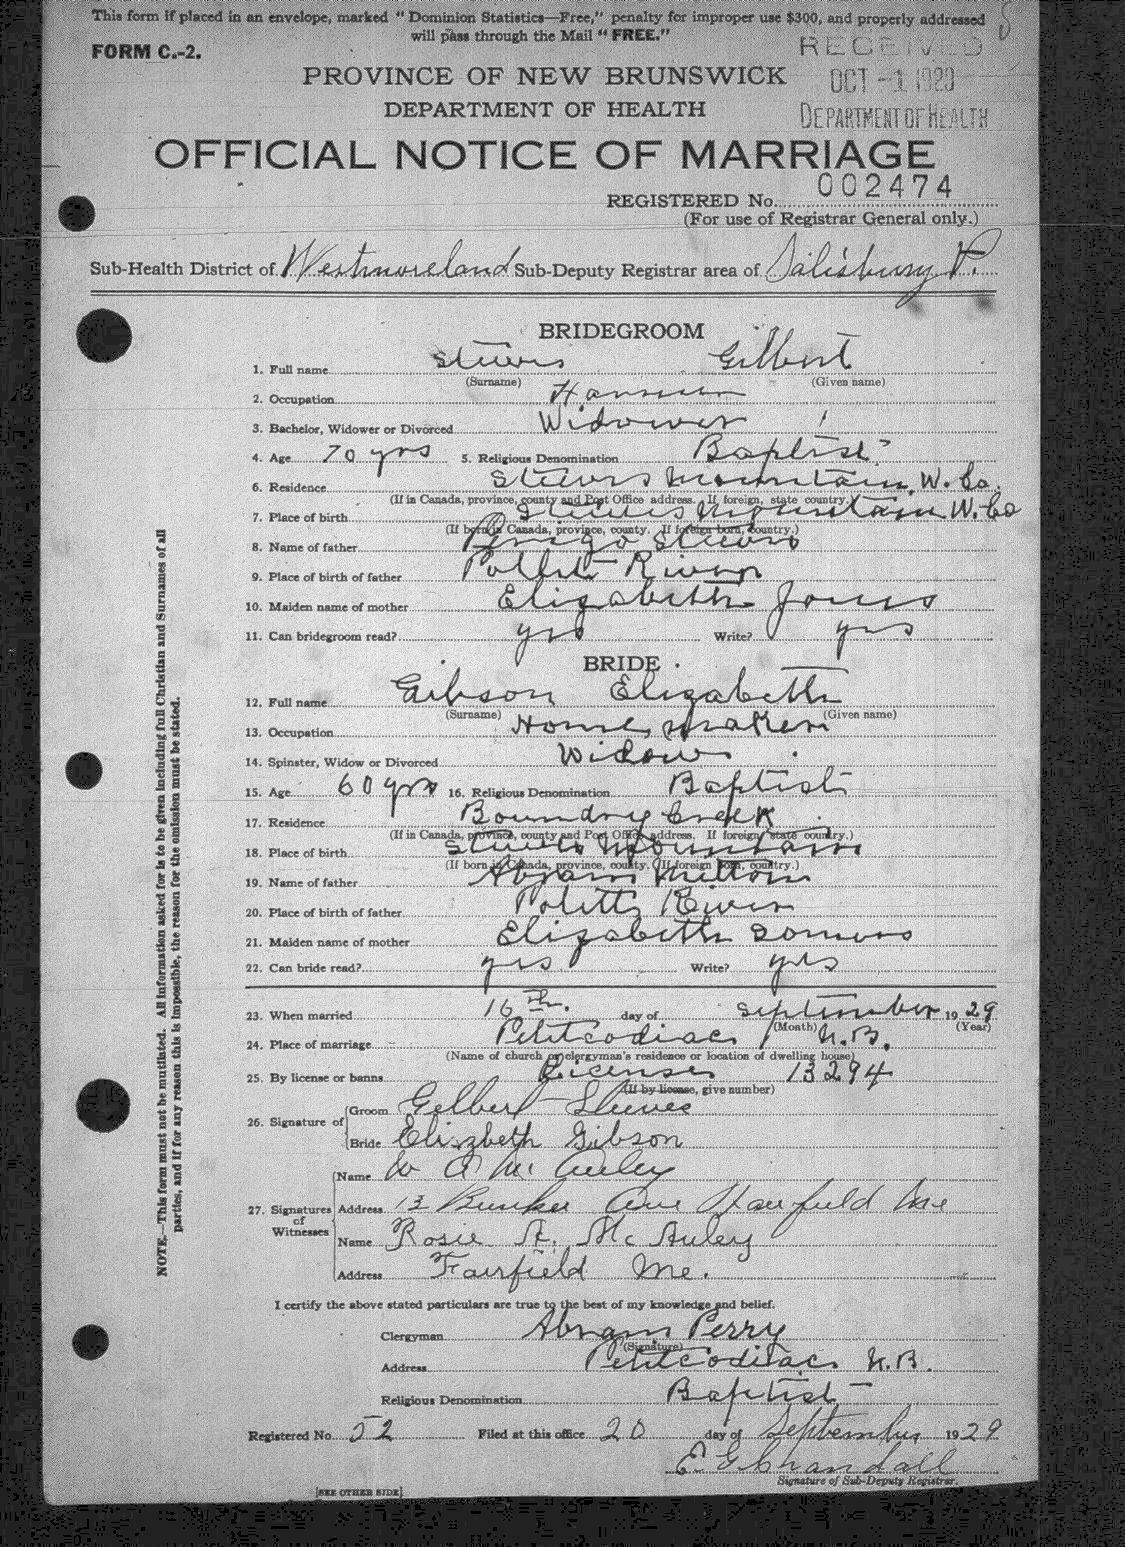 This form if placed in an envelope, marked "Dominion Statistics—Free," penalty for improper use $300, and properly addressed
will pass through the Mail "FREE."
8
FORM C.-2.
RECEIVED
OCT -1 1929
DEPARTMENT OF HEALTH
PROVINCE OF NEW BRUNSWICK
DEPARTMENT OF HEALTH
OFFICIAL NOTICE OF MARRIAGE
REGISTERED No. 002474
(For use of Registrar General only.)
Sub-Health District of Westmoreland Sub-Deputy Registrar area of Salisbury P.
BRIDEGROOM
1. Full name Steeves Gilbert
(Surname) (Given name)
2. Occupation Farmer
3. Bachelor, Widower or Divorced Widower
4. Age 70 yrs 5. Religious Denomination Baptist
6. Residence Steeves Mountain, W. Co.
(If in Canada, province, county and Post Office address. If foreign, state country.)
7. Place of birth Steeves Mountain W. Co
(If born in Canada, province, county. If foreign born, country.)
8. Name of father Steeves
9. Place of birth of father Pollett River
10. Maiden name of mother Elizabeth Jones
11. Can bridegroom read? yes Write? yes
BRIDE
12. Full name Gibson Elizabeth
(Surname) (Given name)
13. Occupation Home maker
14. Spinster, Widow or Divorced Widow
15. Age 60 yrs 16. Religious Denomination Baptist
17. Residence Boundry Creek
(If in Canada, province, county and Post Office address. If foreign state country.)
18. Place of birth Steeves Mountain
(If born in Canada, province, county. If foreign born, country.)
19. Name of father Abram Mitton
20. Place of birth of father Politts River
21. Maiden name of mother Elizabeth Somers
22. Can bride read? yes Write? yes
23. When married 16th. day of September 1929
(Month) (Year)
24. Place of marriage Petitcodiac N.B.
(Name of church or clergyman's residence or location of dwelling house)
25. By license or banns License 13294
(If by license, give number)
26. Signature of Groom Gilbert Steeves
Bride Elizabeth Gibson
27. Signatures of Witnesses
Name W A McAuley
Address 13 Bunker Ave Fairfield Me
Name Rosie A. McAuley
Address Fairfield Me.
I certify the above stated particulars are true to the best of my knowledge and belief.
Clergyman Abram Perry
(Signature)
Address Petitcodiac N.B.
Religious Denomination Baptist
Registered No. 52 Filed at this office 20 day of September 1929
E G Crandall
Signature of Sub-Deputy Registrar.
[SEE OTHER SIDE]
NOTE.—This form must not be mutilated. All information asked for is to be given including full Christian and Surnames of all
parties, and if for any reason this is impossible, the reason for the omission must be stated.